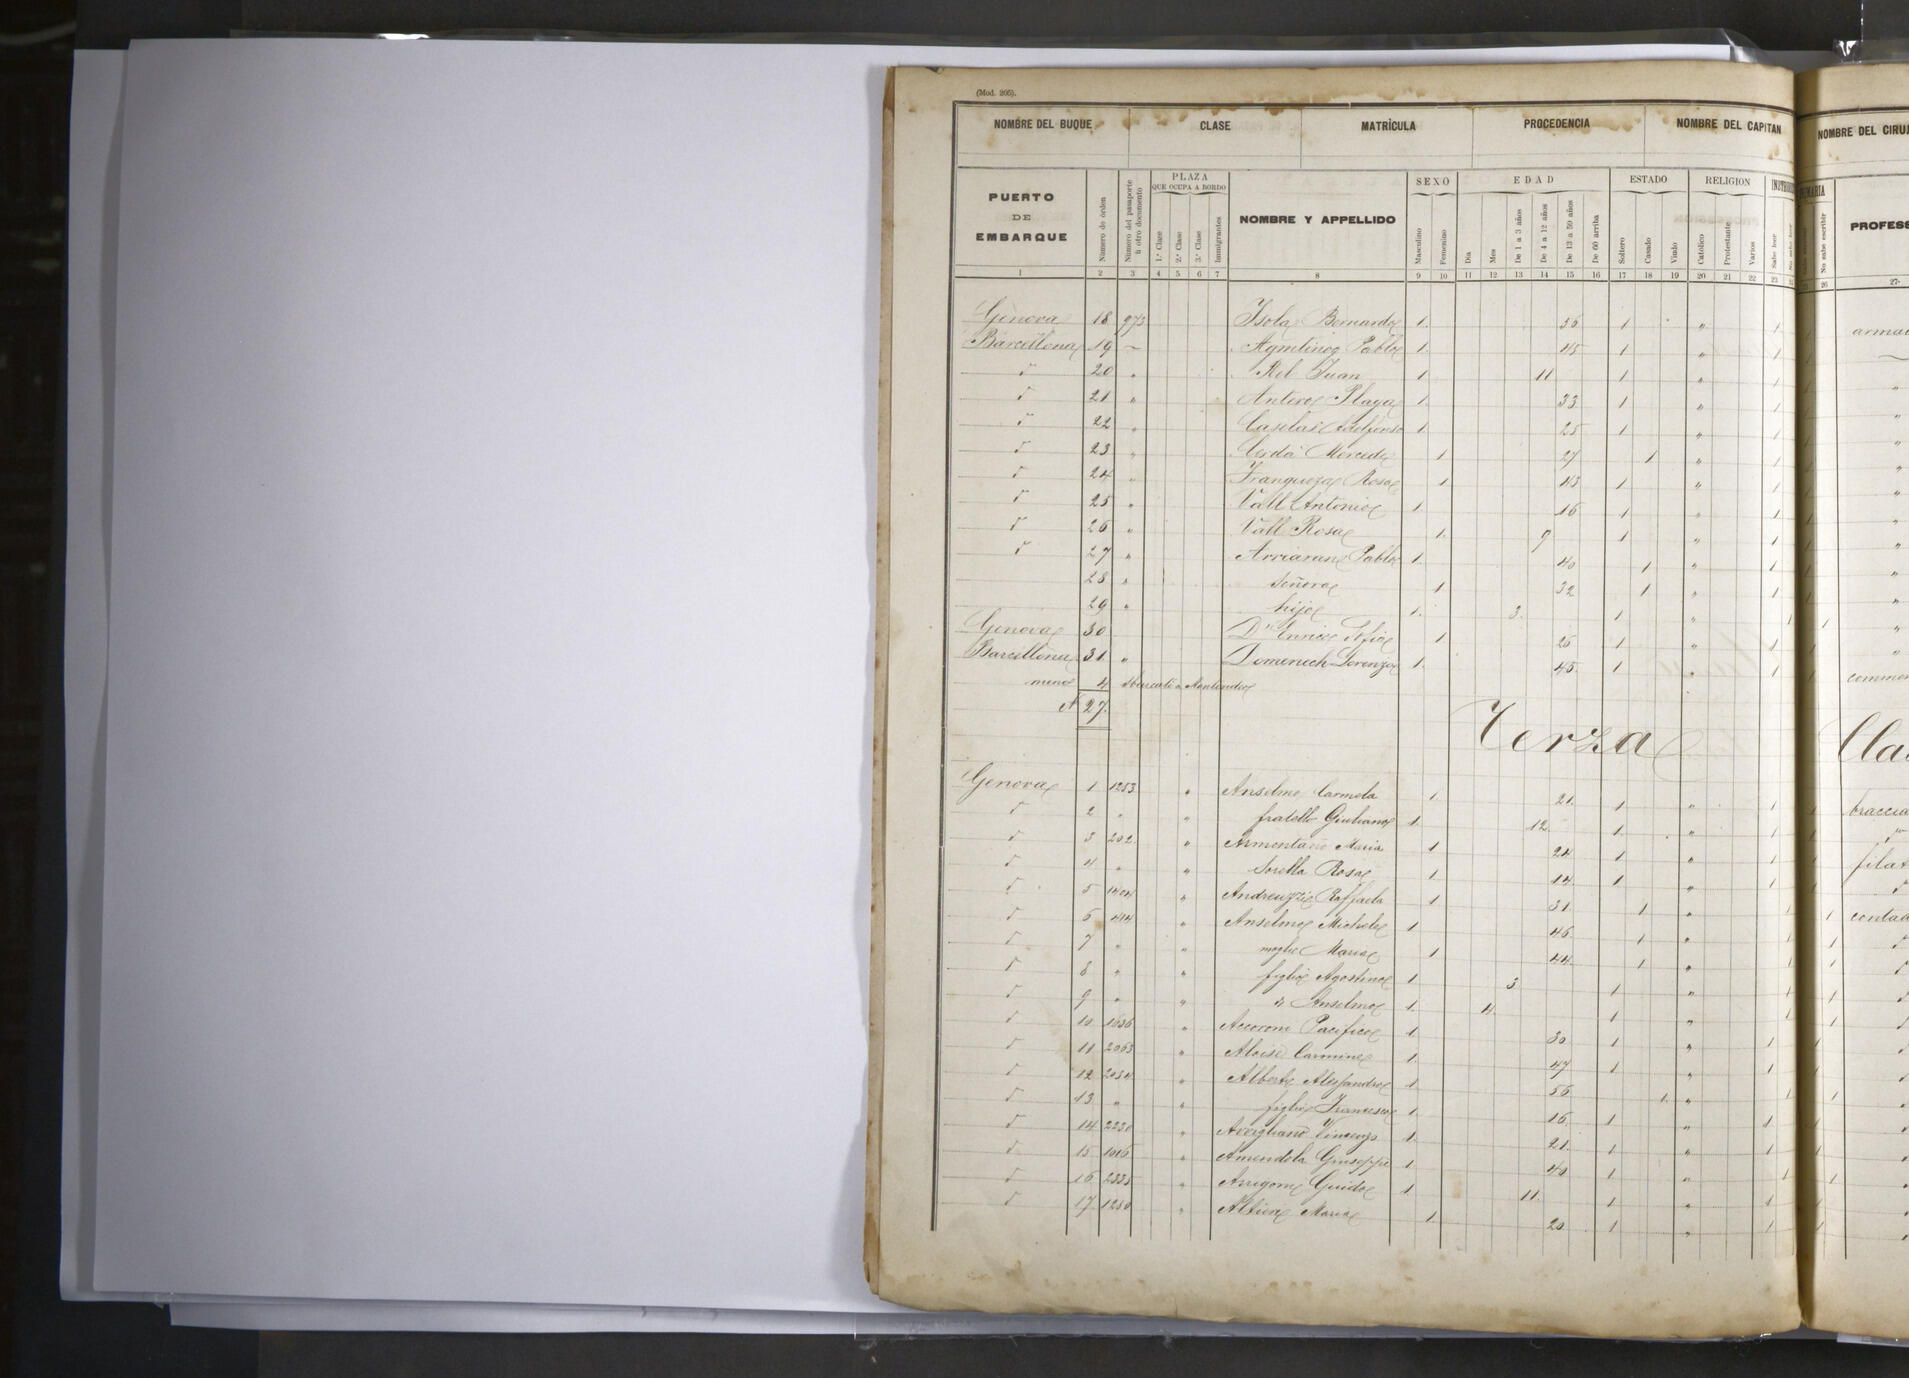 (Mod. 205).
NOMBRE DEL BUQUE CLASE MATRÍCULA PROCEDENCIA NOMBRE DEL CAPITAN NOMBRE DEL CIRUJ
PUERTO DE EMBARQUE
Número de órden
Número del pasaporte ú otro documento
PLAZA QUE OCUPA A BORDO
1.ª Clase 2.ª Clase 3.ª Clase Inmigrantes
NOMBRE Y APPELLIDO
SEXO
Masculino Femenino
EDAD
Dia Mes De 1 a 3 años De 4 a 12 años De 13 a 59 años De 60 arriba
ESTADO
Soltero Casado Viudo
RELIGION
Catolico Protestante Varios
Sabe leer
No sabe escribir
PROFES
1 2 3 4 5 6 7 8 9 10 11 12 13 14 15 16 17 18 19 20 21 22 23 26 27
Genova 18 973 Isola Bernardo 1 36 1 " 1
Barcellona 19 Pablo 1 45 1 " 1
20 " Juan 1 11 1 " 1
21 " Antero Plaga 1 33 1 " 1 "
22 " Caselas 1 25 1 " 1 "
23 " Cerda Mercede 1 27 1 " 1 "
24 " Franqueza Rosa 1 43 1 " 1 "
25 " Vall Antonio 1 16 1 " 1 "
26 " Vall Rosa 1 9 1 " 1 "
27 " Arriaran Pablo 1 40 1 " 1 "
28 " Señora 1 32 1 " 1 "
29 " hijo 1 3 1 " 1 "
Genova 30 Enrico Sofia 1 26 1 " 1 "
Barcellona 31 " Domenech Lorenzo 1 45 1 " 1
meno 4 sbarcati a Montevideo
N 27
Terza Cla
Genova 1 1253 " Anselmo Carmela 1 21 1 " 1 braccia
2 " " fratello Giuliano 1 12 1 " 1
3 202 " Armentano Maria 1 24 1 " 1 filat
4 " " Sorella Rosa 1 14 1 " 1
5 1404 " Andreuzzi Raffaela 1 31 1 " 1 contad
6 414 " Anselmo Michele 1 46 1 " 1
7 " " moglie Maria 1 44 1 " 1
8 " " figlio Agostino 1 3 1 " 1
9 " " " Anselmo 1 4 1 " 1
10 1636 " Accoroni Pacifico 1 30 1 " 1
11 2063 " Aloise Carmine 1 47 1 " 1
12 2034 " Alberti Alessandro 1 56 1 " 1
13 " " figlio Francesco 1 16 1 " 1
14 2230 " Avigliano Vincenzo 1 21 1 " 1
15 1016 " Amendola Giuseppe 1 40 1 " 1
16 2335 " Arrigoni Guido 1 11 1 " 1
17 1250 " Altieri Maria 1 20 1 " 1